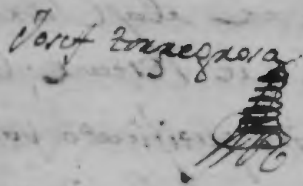 Josef torregrosa